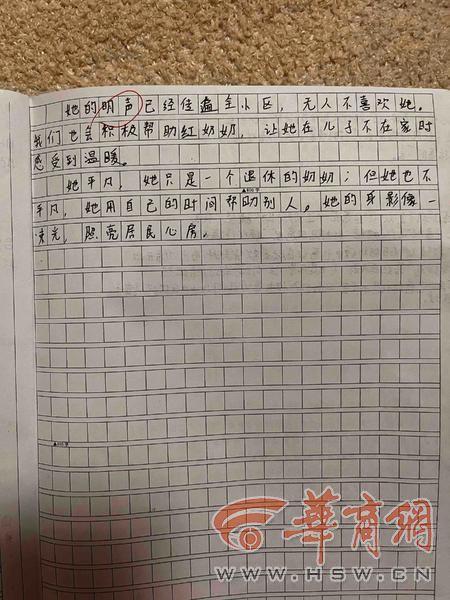 她的明声已经住遍全小区，无人不喜欢她。
我们也会积极帮助红奶奶，让她在儿子不在家时
感受到温暖。
她平凡，她只是一个退休的奶奶；但她也不
平凡，她用自己的时间帮助别人。她的身影像一
束光，照亮居民心房。
华商网
WWW.HSW.CN